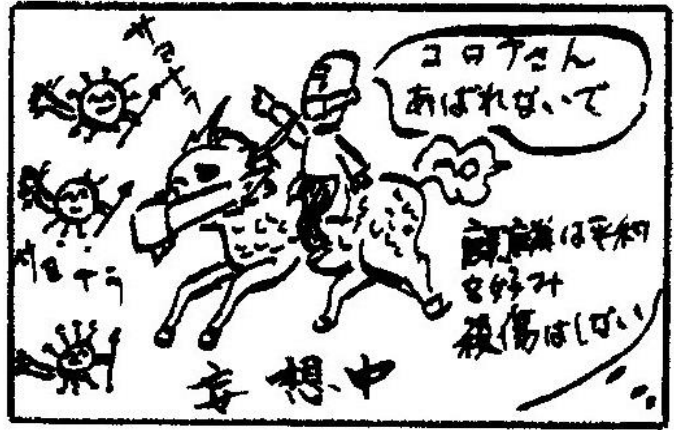 コロナさん
あばれないで
麒麟は平和
を好み
殺傷はしない
妄想中